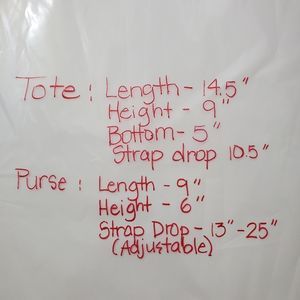 Tote : Length - 14.5"
Height - 9"
Bottom - 5"
Strap drop 10.5"
Purse : Length - 9"
Height - 6"
Strap Drop - 13"-25"
(Adjustable)